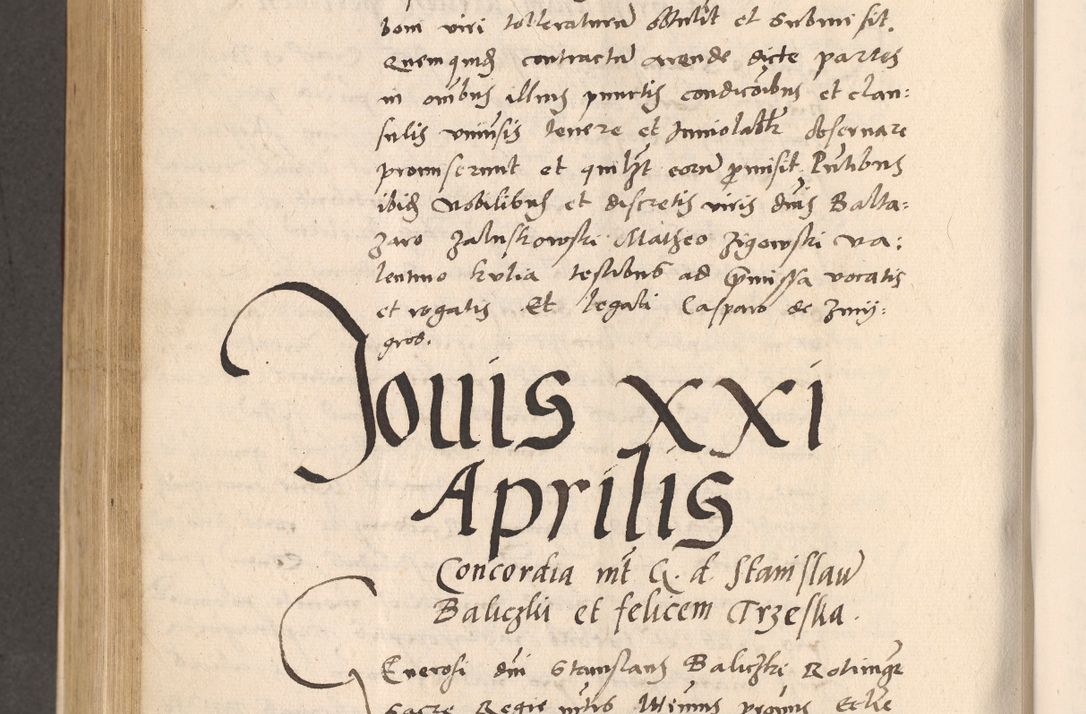 boni viri tolleraturũ obtulit et submisit.
Quemquidẽ contractũ arende dicte partes
in oĩbus illius punctis condicõibus et clau:
sulis vniuẽsis tenere et Inuiolabtr obseruare
promiserunt et quilꝫt eorũ ꝓmisit. Pñtibus
ibidẽ Nobilibus et discretis viris dñis Balta:
zaro Zaluskowski Matheo Zigowski Va:
lentino Kulia testibus ad p̃missa vocatis
et rogatis Et legati Casparo de Zmij:
grod.
Jouis XXI
Aprilis
Concordia int̃ G. d Stanislaũ
Baliczkii et felicem Trzeska.
Generosi dñi Stanislaus Baliczki Rotmagr̃
Sacre Regie mt̃is